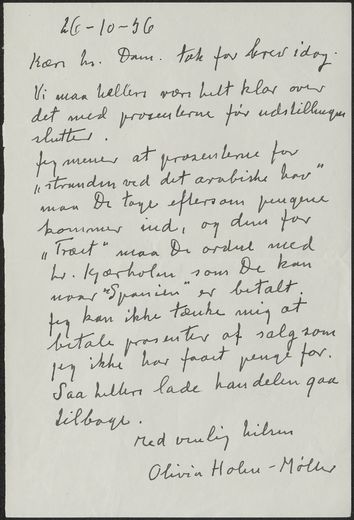 26-10-56
Kære hr. Dam. tak for brev idag.
Vi maa hellere være helt klar over
det med prosenterne før udstillingen
slutter.
Jeg mener at prosenterne for
"stranden ved det arabiske hav"
maa De tage eftersom pengene
kommer ind, og dem for
"Træet" maa De ordne med
hr. Kjærholm som De kan
naar "Spanien" er betalt.
Jeg kan ikke tænke mig at
betale prosenter af salg som
jeg ikke har faaet penge for.
Saa hellere lade handelen gaa
tilbage.
Med venlig hilsen
Olivia Holm-Møller